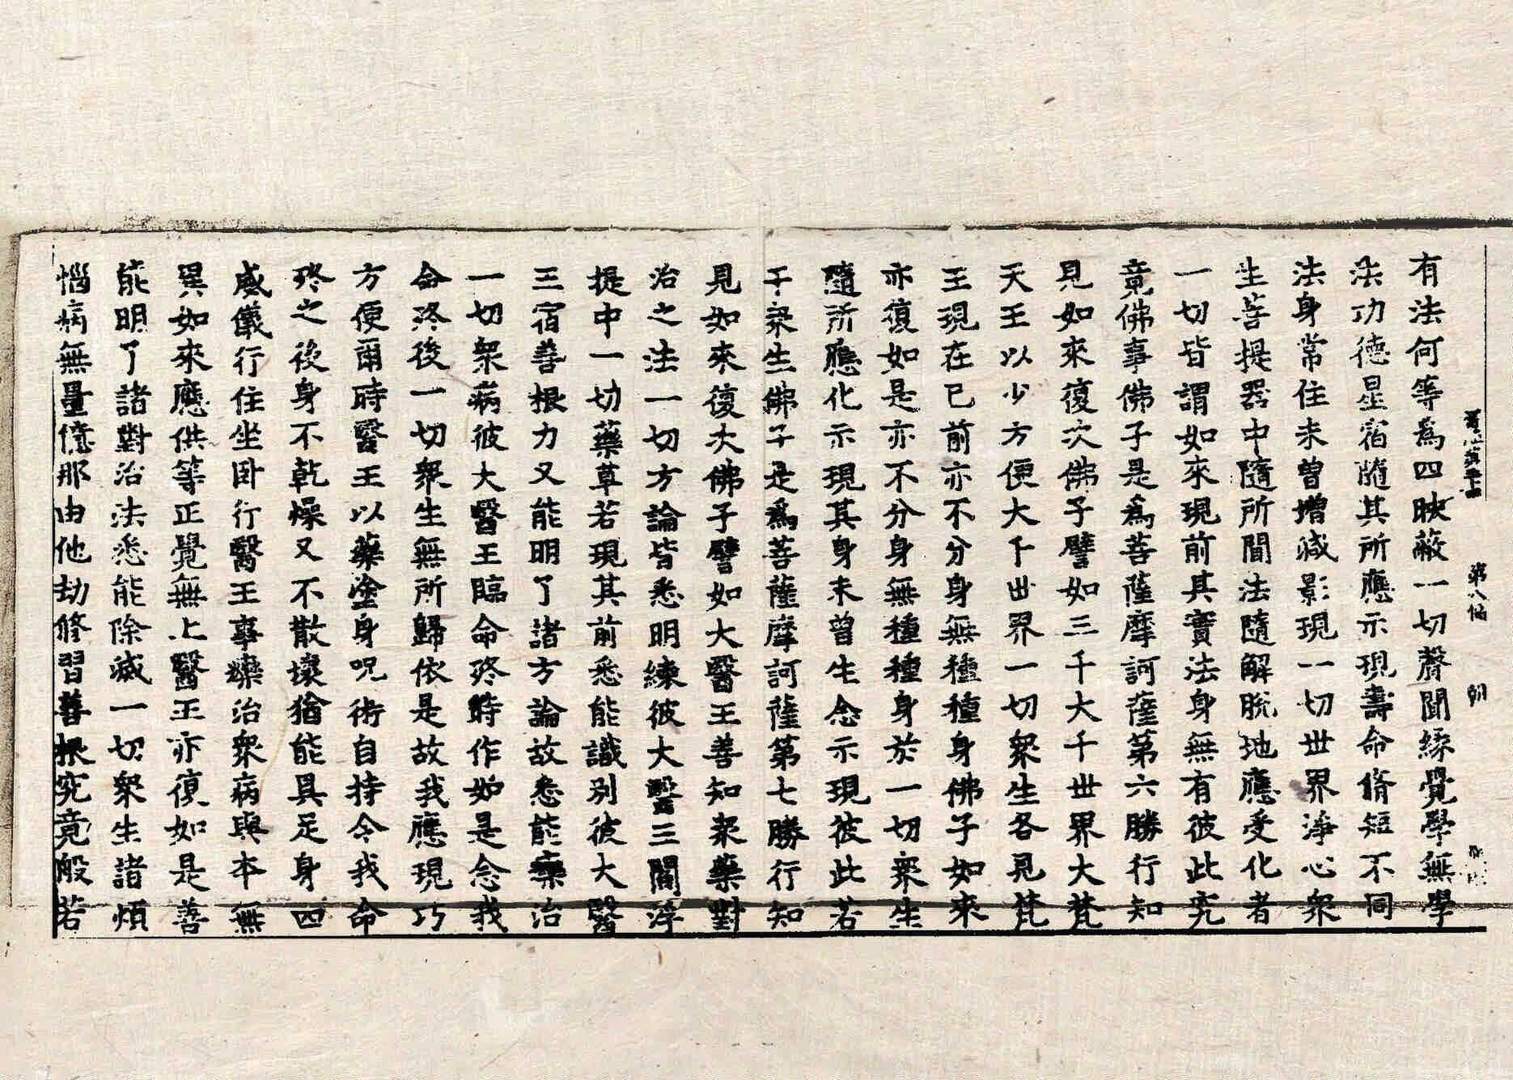 有法何等為四映蔽一切聲聞緣覺學無學
法功德星宿隨其所應示現壽命脩短不同
法身常住未曾增減影現一切世界淨心眾
生菩提器中隨所聞法隨解脫地應受化者
一切皆謂如來現前其實法身無有彼此究
竟佛事佛子是為菩薩摩訶薩第六勝行知
見如來復次佛子譬如三千大千世界大梵
天王以少方便大千世界一切眾生各見梵
王現在已前亦不分身無種種身佛子如來
亦復如是亦不分身無種種身於一切眾生
隨所應化示現其身未曾生念示現彼此若
干眾生佛子是為菩薩摩訶薩第七勝行知
見如來復次佛子譬如大醫王善知眾藥對
治之法一切方論皆悉明練彼大醫王閻浮
提中一切藥草若現其前悉能識別彼大醫
王宿善根力又能明了諸方論故悉能療治
一切眾病彼大醫王臨命終時作如是念我
命終後一切眾生無所歸依是故我應現巧
方便爾時醫王以藥塗身呪術自持令我命
終之後身不乾燥又不散壞猶能具足身四
威儀行住坐臥行醫王事療治眾病與本無
異如來應供等正覺無上醫王亦復如是善
能明了諸對治法悉能除滅一切眾生諸煩
惱病無量億那由他劫修習善根究竟般若
第八